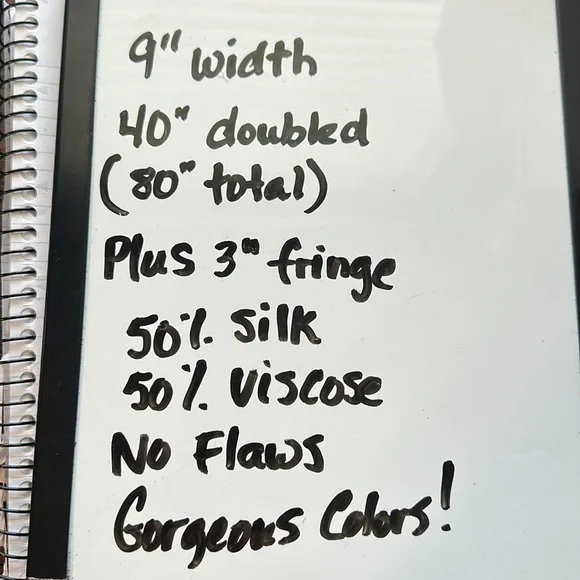 9" width
40" doubled
(80" total)
Plus 3" fringe
50% silk
50% viscose
No Flaws
Gorgeous Colors!